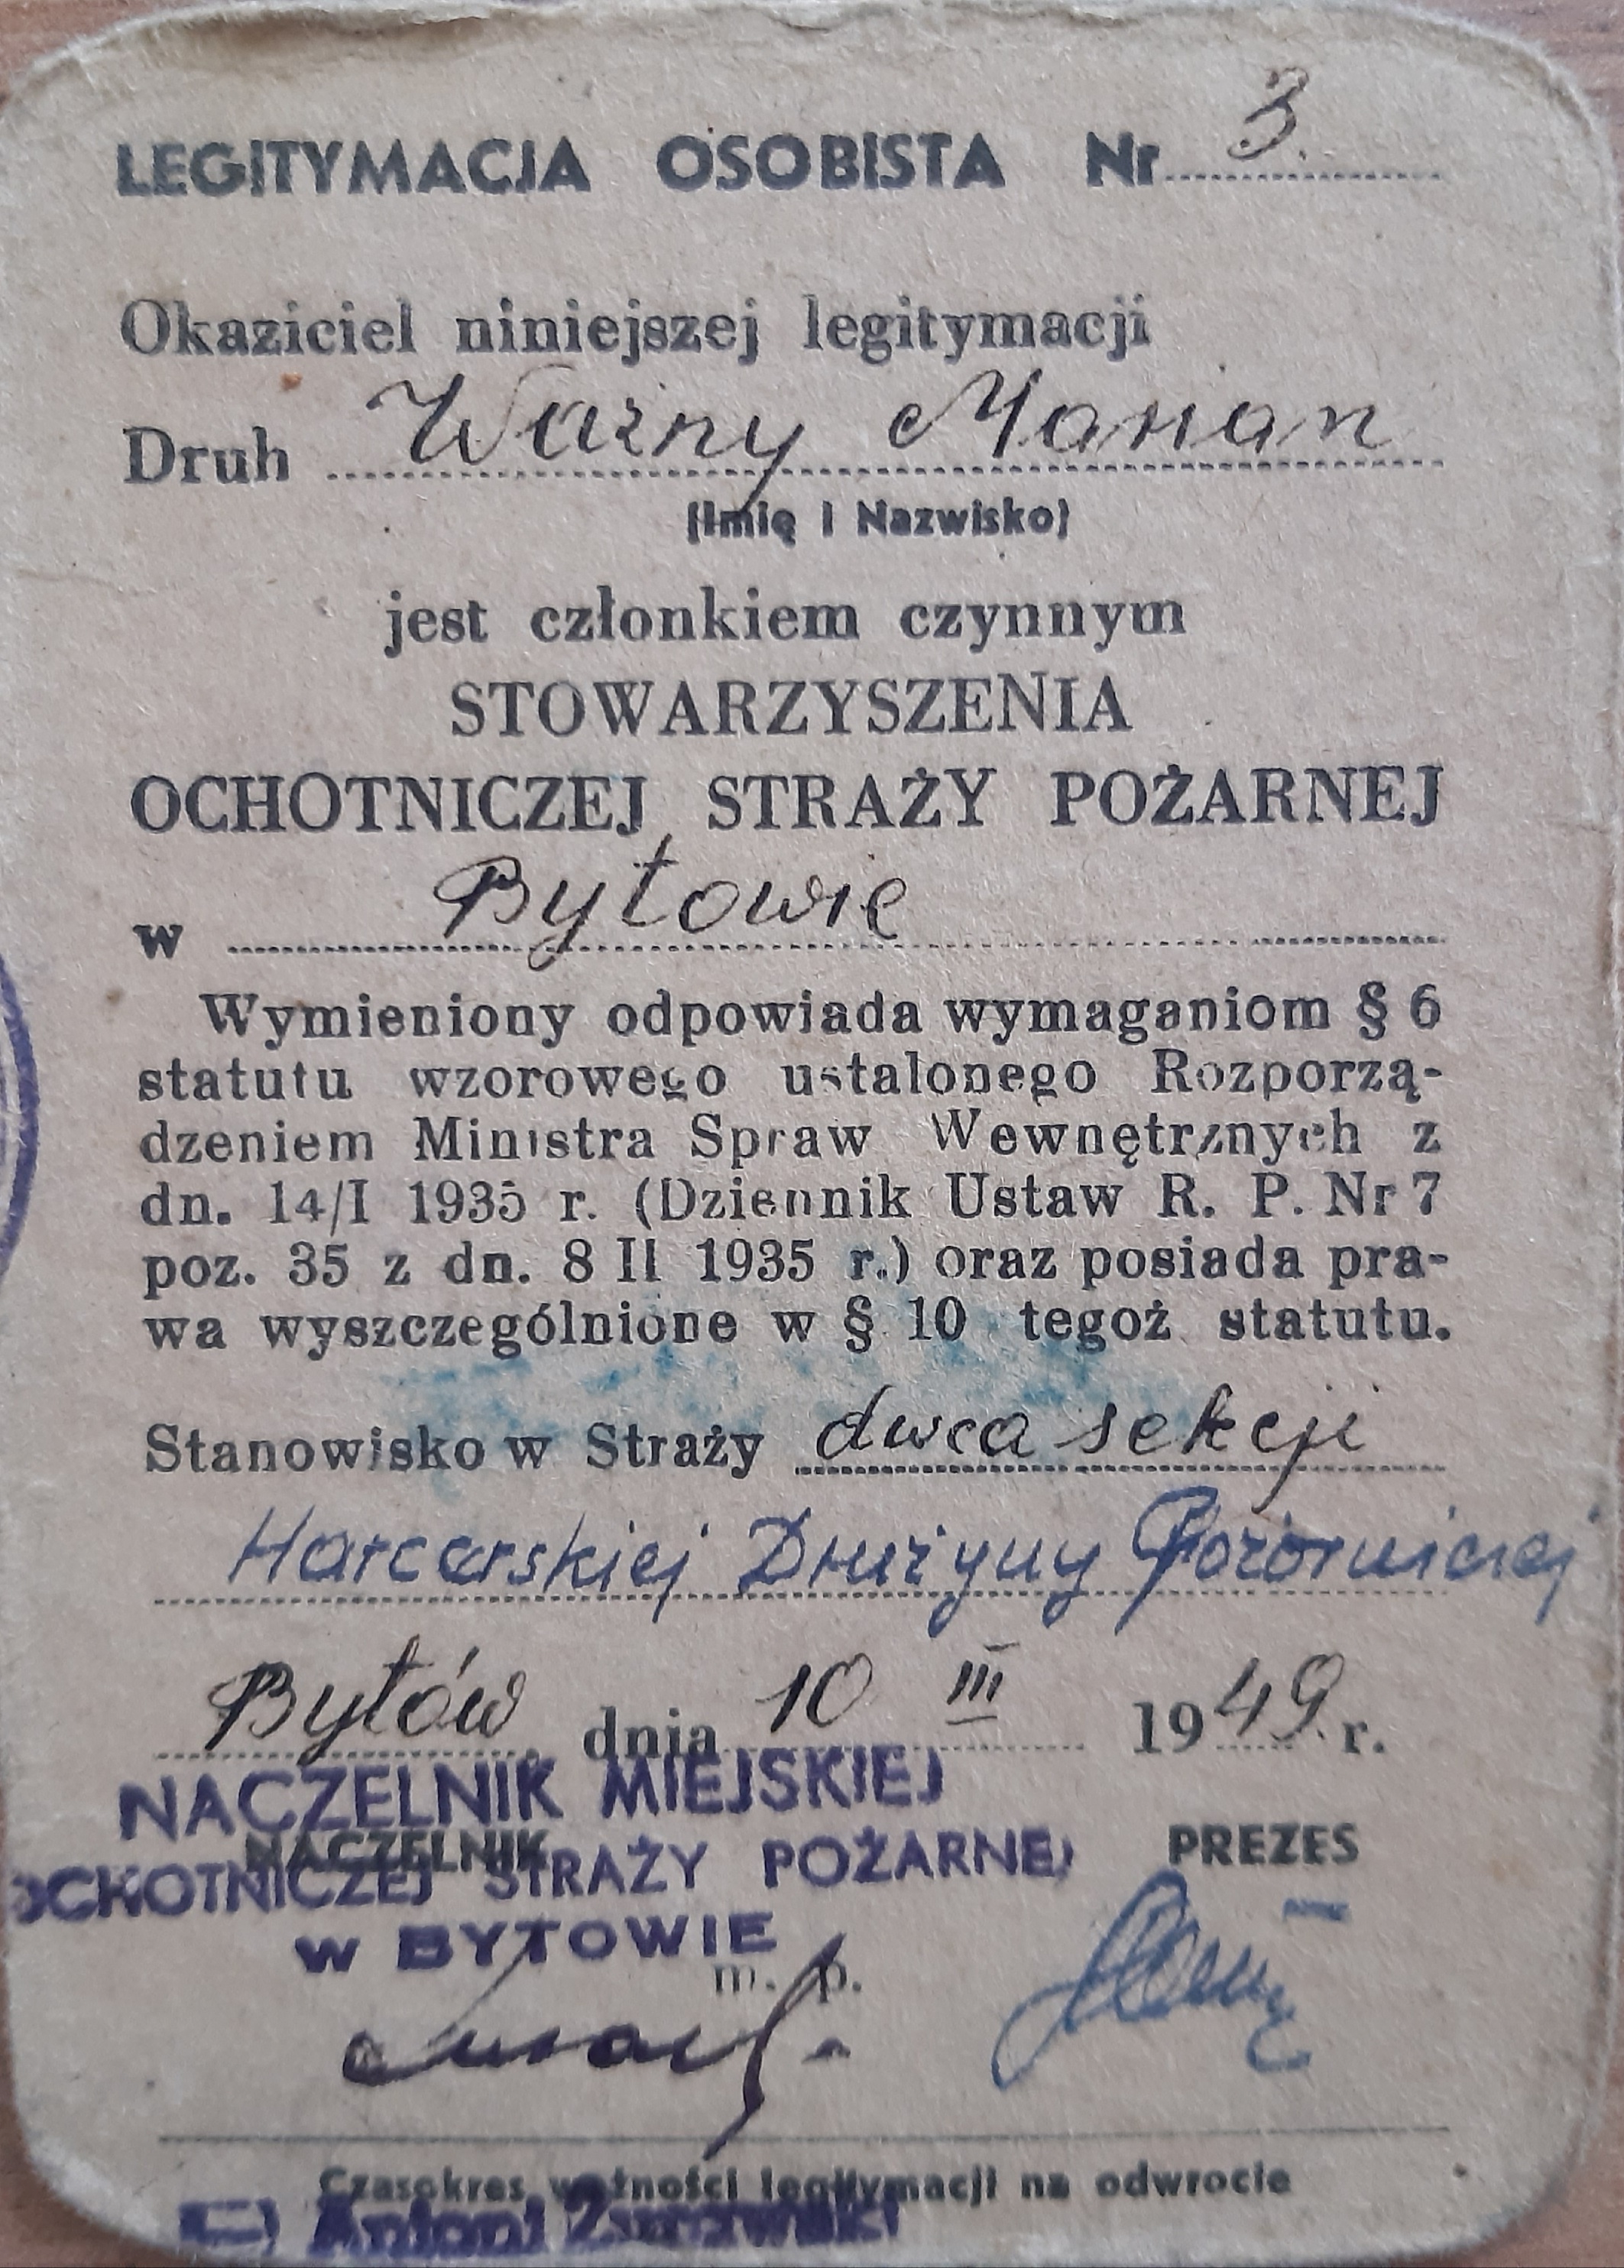 LEGITYMACJA OSOBISTA Nr 3.
Okaziciel niniejszej legitymacji
Druh Ważny Marian
(Imię i Nazwisko)
jest członkiem czynnym
STOWARZYSZENIA
OCHOTNICZEJ STRAŻY POŻARNEJ
w Bytowie
Wymieniony odpowiada wymaganiom § 6
statutu wzorowego ustalonego Rozporzą-
dzeniem Ministra Spraw Wewnętrznych z
dn. 14/I 1935 r. (Dziennik Ustaw R. P. Nr 7
poz. 35 z dn. 8 II 1935 r.) oraz posiada pra-
wa wyszczególnione w § 10 tegoż statutu.
Stanowisko w Straży dwca sekcji
Harcerskiej Drużyny Pożarniczej
Bytów dnia 10 III 1949 r.
NACZELNIK MIEJSKIEJ
NACZELNIK PREZES
OCHOTNICZEJ STRAŻY POŻARNEJ
w BYTOWIE
m. p.
Czasokres ważności legitymacji na odwrocie
Antoni